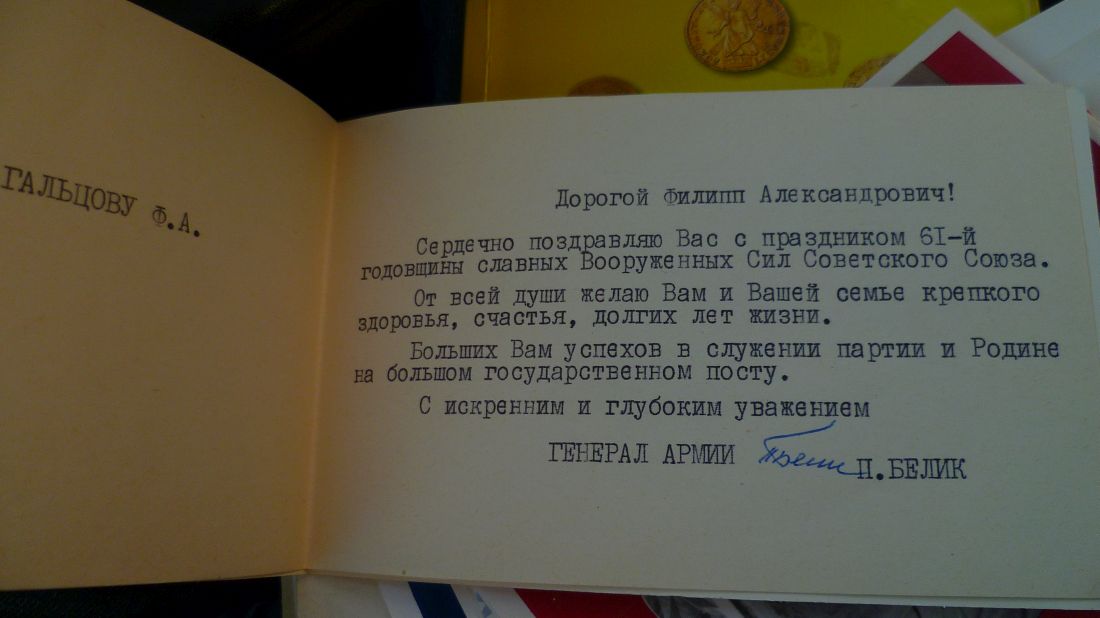 ГАЛЬЦОВУ Ф.А.
Дорогой Филипп Александрович!
Сердечно поздравляю Вас с праздником 61-й
годовщины славных Вооруженных Сил Советского Союза.
От всей души желаю Вам и Вашей семье крепкого
здоровья, счастья, долгих лет жизни.
Больших Вам успехов в служении партии и Родине
на большом государственном посту.
С искренним и глубоким уважением
ГЕНЕРАЛ АРМИИ П.БЕЛИК